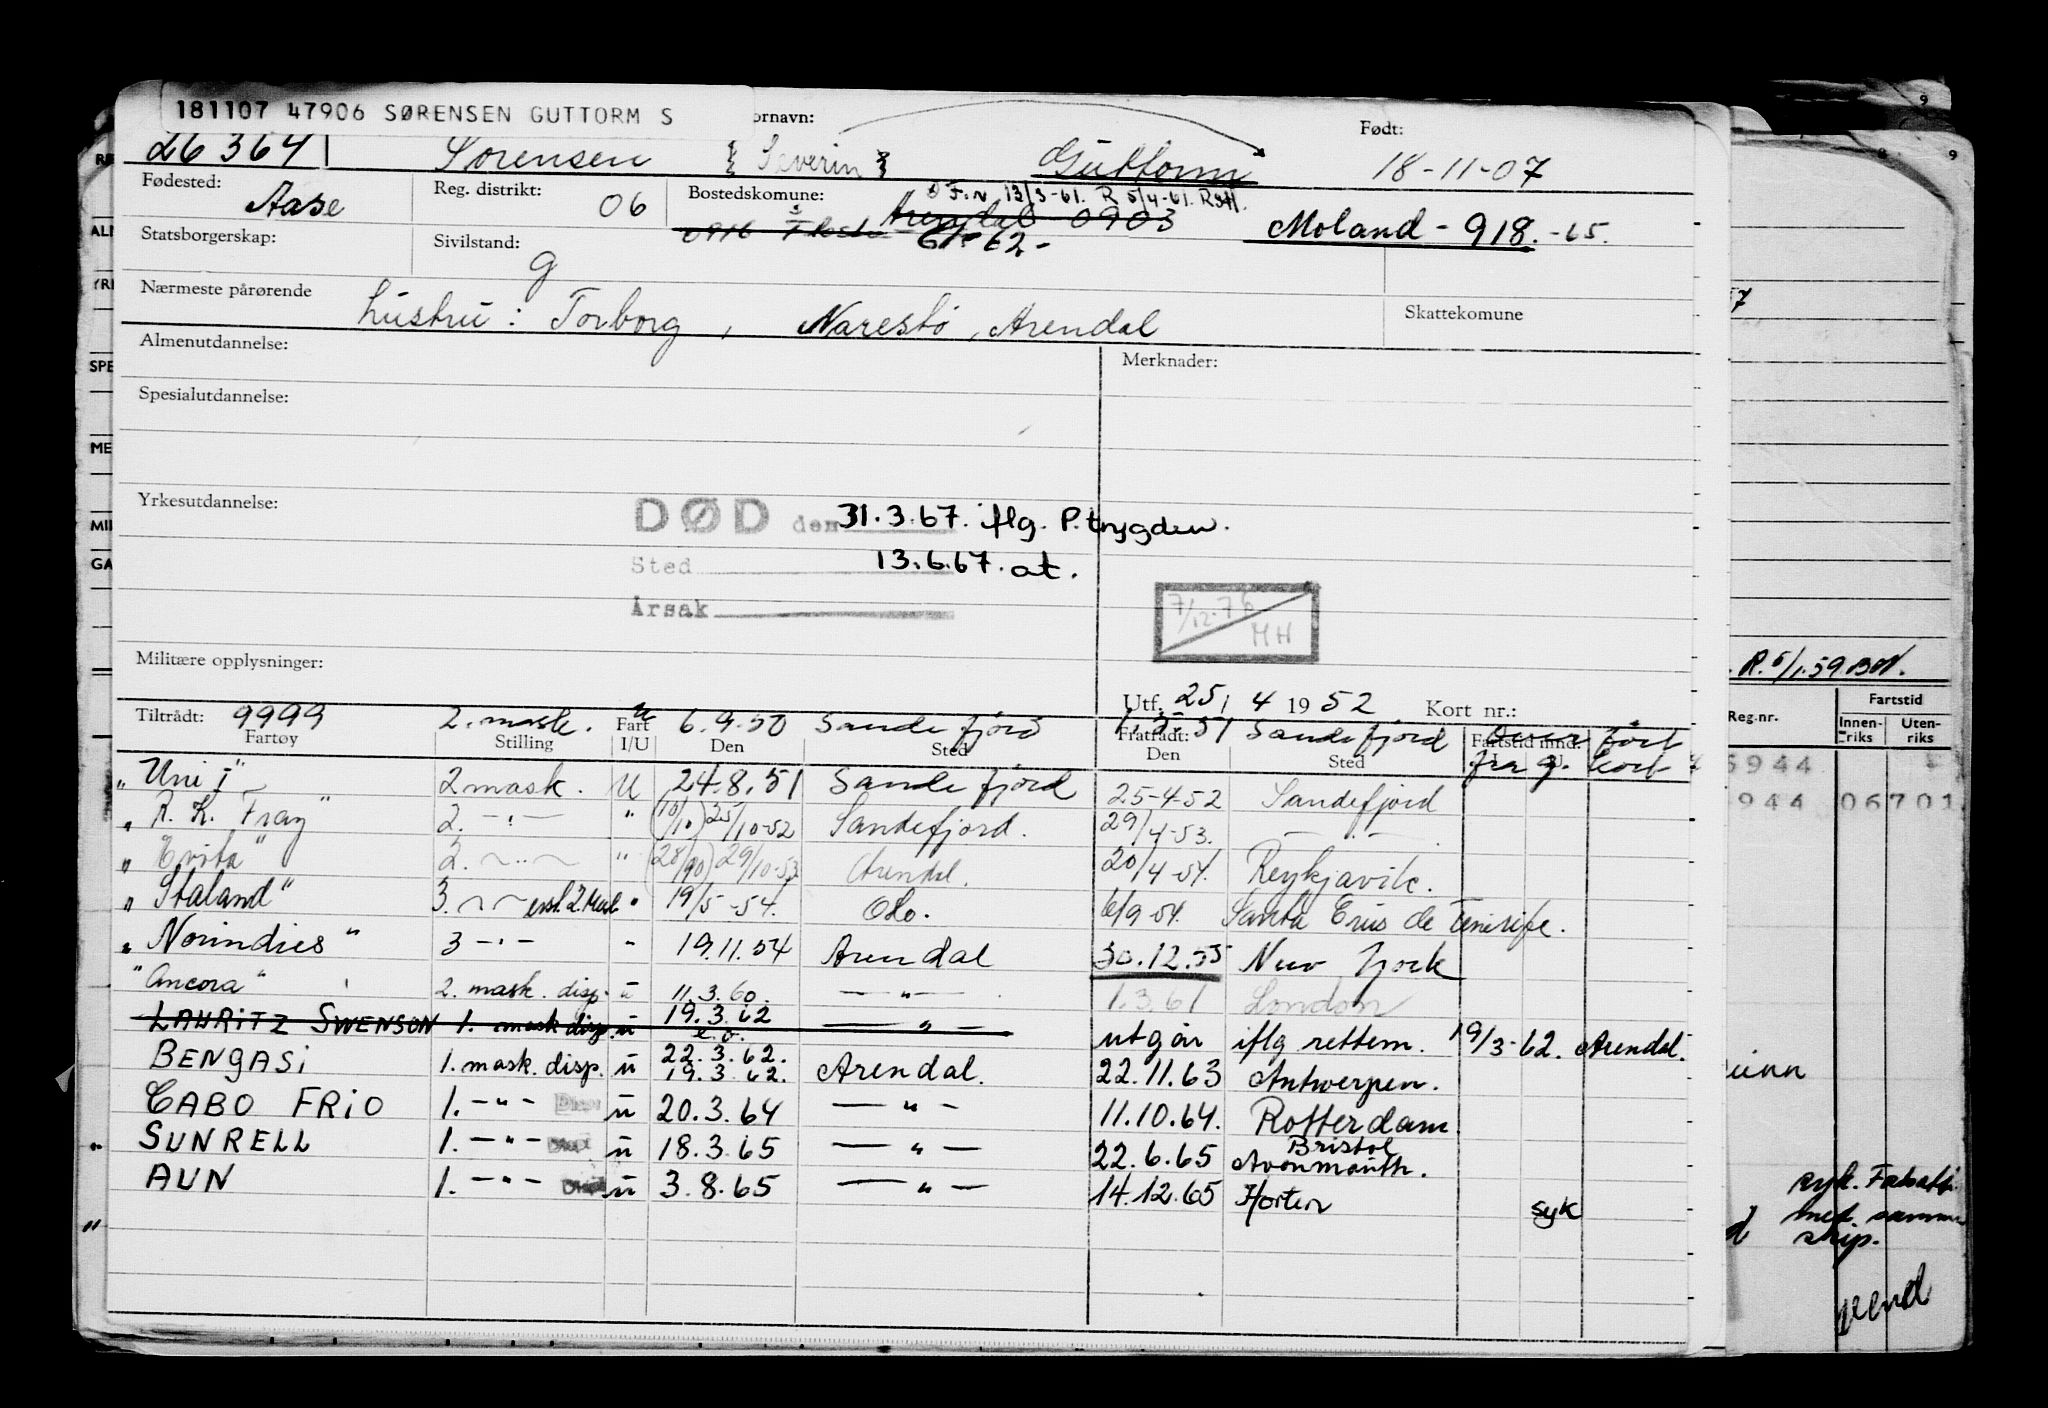 181107 47906 SØRENSEN GUTTORM S
ornavn: Født:
26364 Sørensen { Severin } Guttorm 18-11-07
Fødested: Aase Reg. distrikt: 06 Bostedskomune: F.n 13/3-61. R 5/4-61.
0916 Flosta Arendal 0903 Moland - 918. -65.
Statsborgerskap: Sivilstand: g 62-
Nærmeste pårørende Skattekomune
hustru: Torborg, Narestø, Arendal
Almenutdannelse: Merknader:
Spesialutdannelse:
Yrkesutdannelse:
DØD den 31.3.67. iflg. P.trygden.
Sted 13.6.67. at.
Årsak
7/12-76 MH
Militære opplysninger:
Utf. 25/4 1952 Kort nr.:
Tiltrådt: 9999 2. mask. u 6.9.50 Sandefjord Fratrådt: 1.5.51 Sandefjord Overført
Fartøy Stilling Fart I/U Den Sted Den Sted Fartstid mnd. fra g. kort
"Uni I" 2 mask. U 24.8.51 Sandefjord 25-4-52 Sandefjord
"R. K. Fray" 2. -"- " (10/10) 25/10-52 Sandefjord. 29/4-53. -"-
"Evita" 2. -"- " 29/10-53 Arendal. 20/4-54. Reykjavik.
"Staland" 3. -"- " 19/5-54. Oslo. 6/9-54. Santa Crus de Tenerife.
"Norindies" 3 -"- " 19.11.54 Arendal 30.12.55 New York
"Ancora" 2. mask. disp. u 11.3.60. -"- 1.3.61 London
LAURITZ SWENSON 1. mask disp. u 19.3.62 -"- utgår iflg rettem. 19/3-62. Arendal.
e.o.
BENGASI 1. mask. disp. u 22.3.62. 19.3.62. Arendal. 22.11.63 Antwerpen.
CABO FRIO 1. -"- Disp u 20.3.64 -"- 11.10.64. Rotterdam
SUNRELL 1. -"- u 18.3.65 -"- 22.6.65 Bristol Avonmouth.
AUN 1. -"- u 3.8.65 -"- 14.12.65 Horten syk
"
9
8 9
R. 5/1.59
Reg.nr. Fartstid
Innen-riks Uten-riks
5944
944 06701
syk.
med. samme
skip.